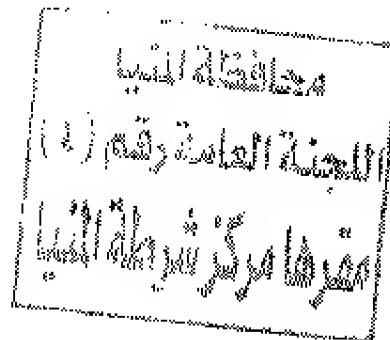 محافظة المنيا
اللجنة العامة رقم (٤)
مقرها مركز شرطة المنيا